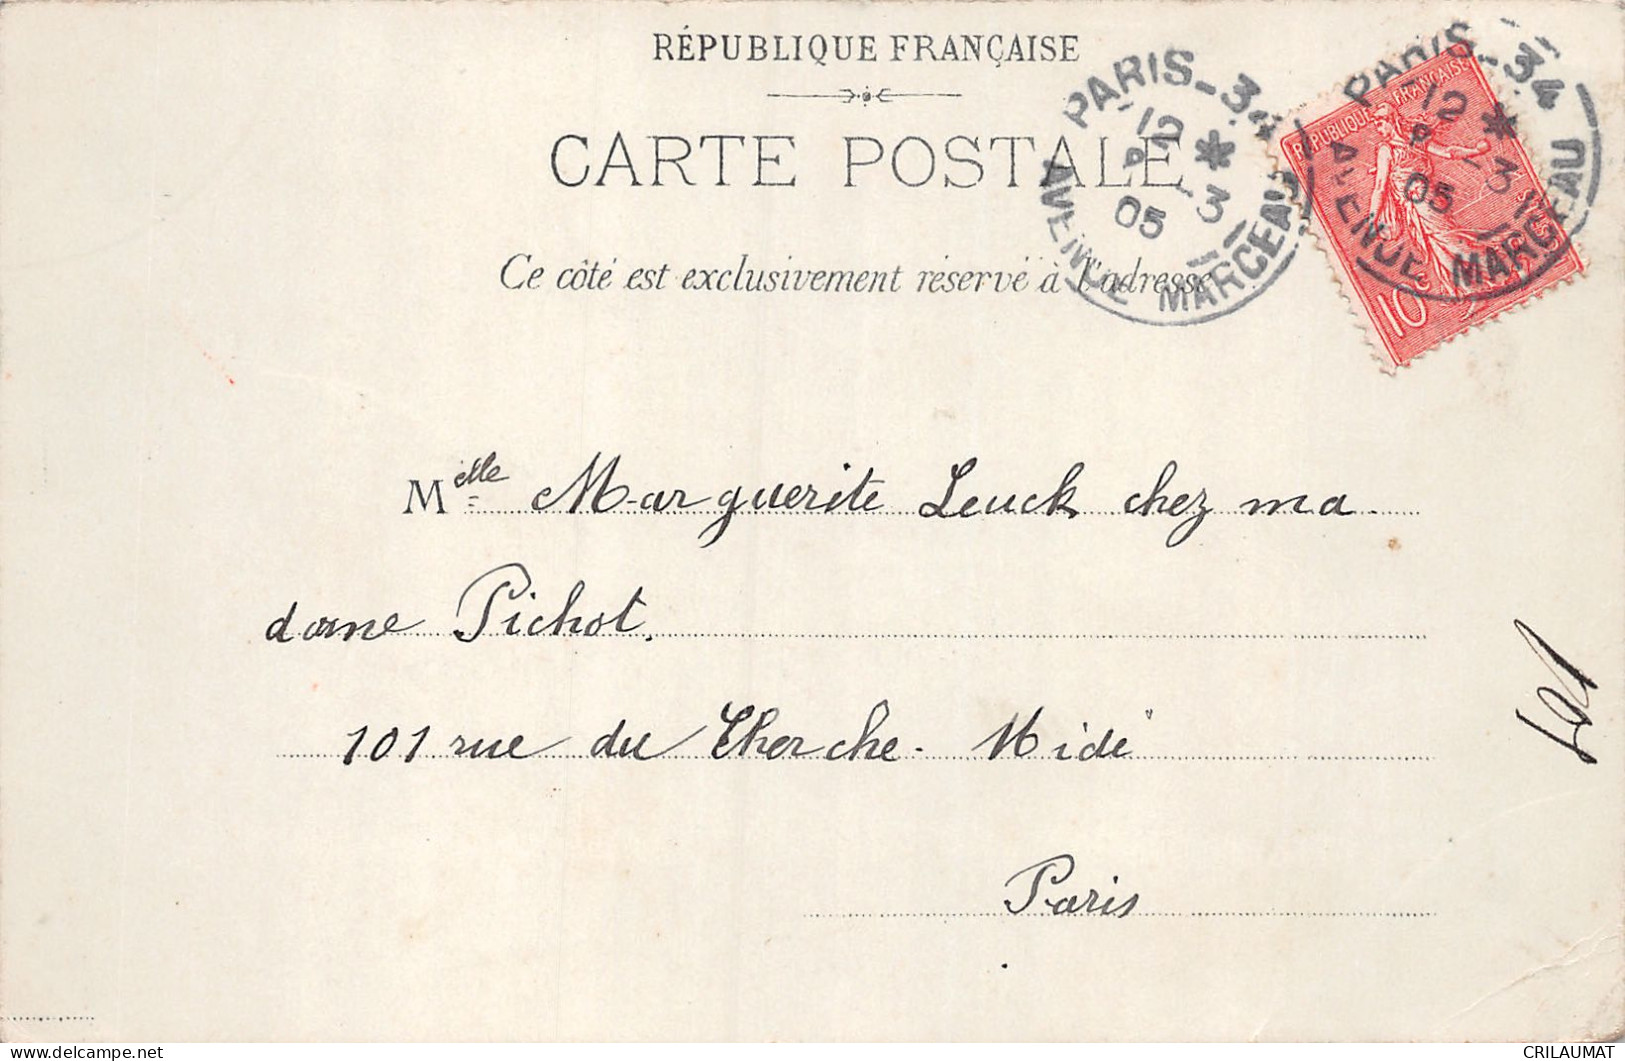 RÉPUBLIQUE FRANÇAISE
CARTE POSTALE
Ce côté est exclusivement réservé à l'adresse
PARIS-34
12 *
-3
05
AVENUE MARCEAU
PARIS-34
12 *
-3
05
AVENUE MARCEAU
RÉPUBLIQUE FRANÇAISE
10c
Melle Marguerite Leuck chez ma
dame Pichot.
101 rue du Cherche-Midi
Paris
CRILAUMAT